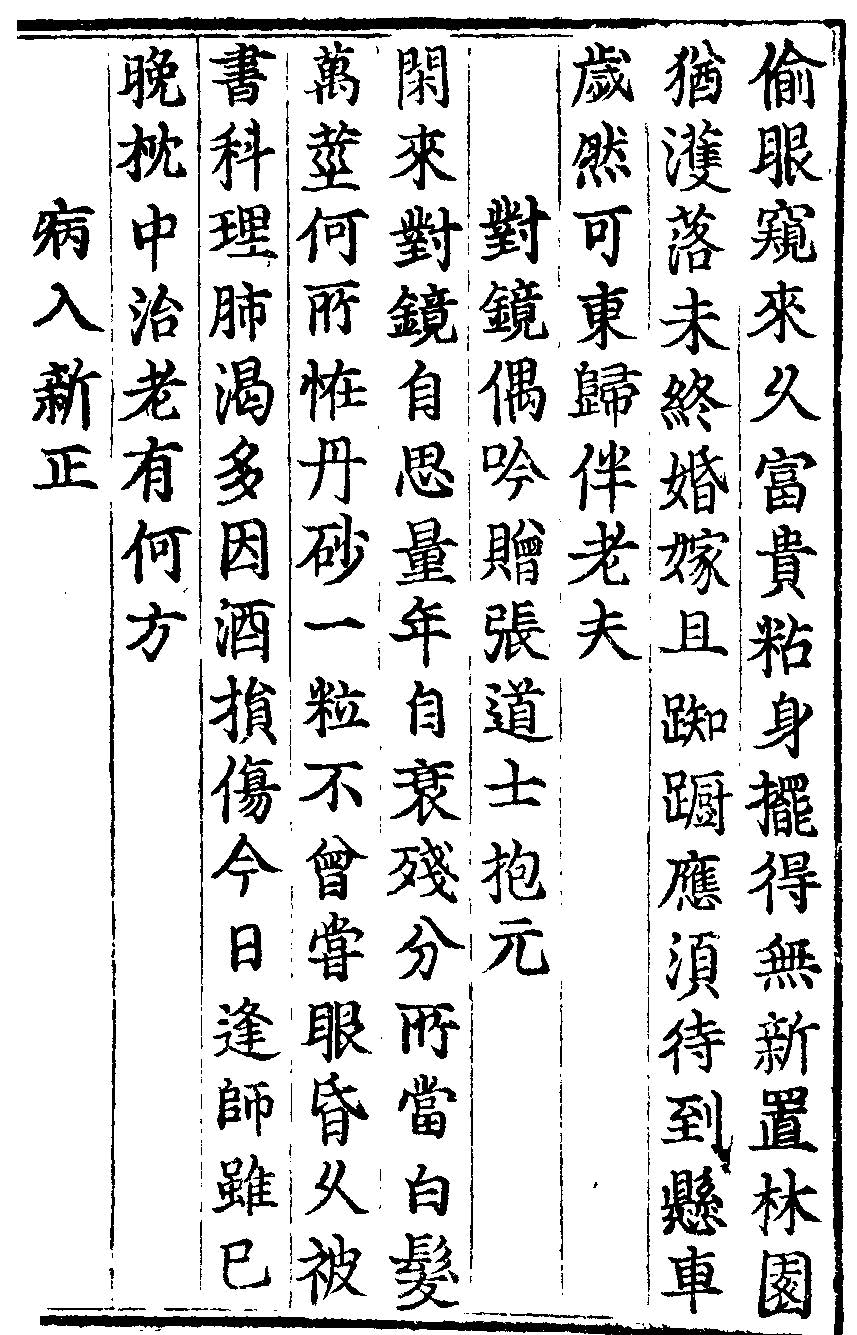 偷眼窺來久富貴粘身擺得無新置林園
猶濩落未終婚嫁且踟蹰應須待到懸車
歲然可東歸伴老夫
對鏡偶吟贈張道士抱元
閑來對鏡自思量年自衰殘分所當白髮
萬莖何所恠丹砂一粒不曾嘗眼昏久被
書科理肺渴多因酒損傷今日逢師雖已
晚枕中治老有何方
病入新正